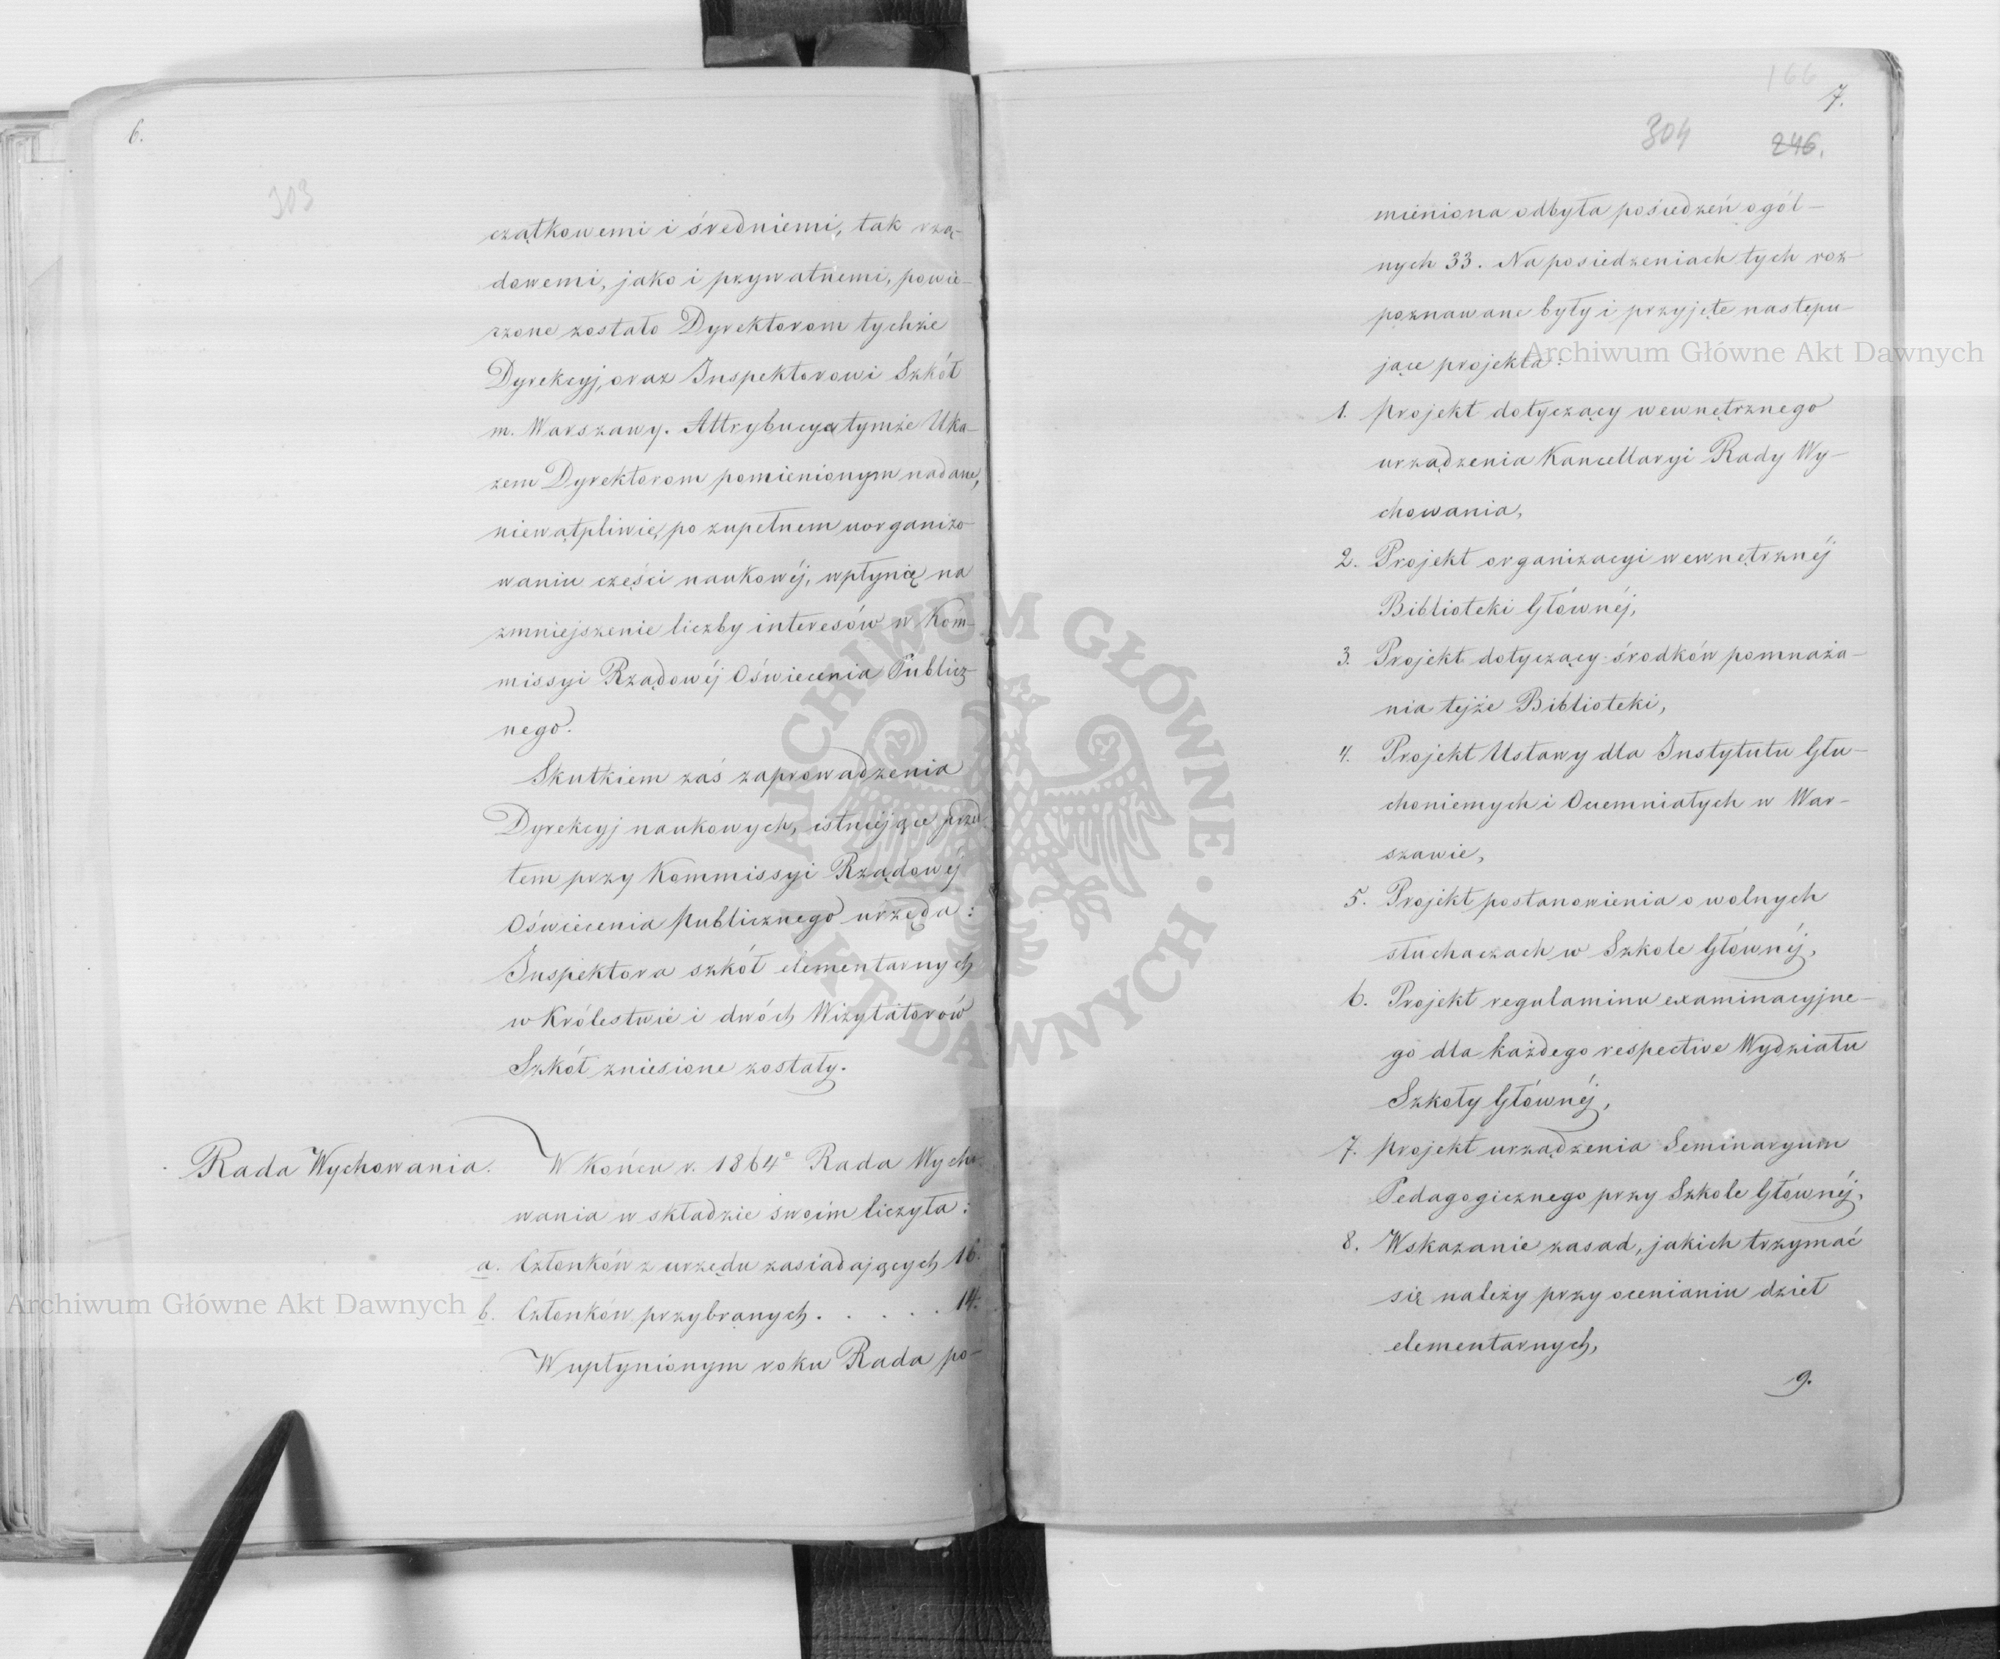 6.
303
czątkowemi i średniemi, tak rzą-
dowemi, jako i prywatnemi, powie-
rzone zostało Dyrektorom tychże
Dyrekcyj, oraz Inspektorowi Szkół
m. Warszawy. Attrybucye tymże Uka-
zem Dyrektorom pomienionym nadane,
niewątpliwie, po zupełnem uorganizo-
waniu części naukowéj, wpłyną na
zmniejszenie liczby interesów w Kom-
missyi Rządowéj Oświecenia Publicz-
nego.
Skutkiem zaś zaprowadzenia
Dyrekcyj naukowych, istniejące przed
tem przy Kommissyi Rządowéj
Oświecenia Publicznego urzęda:
Inspektora szkół elementarnych
w Królestwie i dwóch Wizytatorów
Szkół zniesione zostały.
Rada Wychowania. W końcu r. 1864º Rada Wycho-
wania w składzie swoim liczyła:
a. Członków z urzędu zasiadających 16.
b. Członków przybranych . . . . 14.
W upłynionym roku Rada po-
166
7.
304
246.
mieniona odbyła posiedzeń ogól-
nych 33. Na posiedzeniach tych roz-
poznawane były i przyjęte następu-
jące projekta:
1. Projekt dotyczący wewnętrznego
urządzenia Kancellaryi Rady Wy-
chowania,
2. Projekt organizacyi wewnętrznéj
Biblioteki Głównéj,
3. Projekt dotyczący środków pomnaża-
nia tejże Biblioteki,
4. Projekt Ustawy dla Instytutu Głu-
choniemych i Ociemniałych w War-
szawie,
5. Projekt postanowienia o wolnych
słuchaczach w Szkole Głównéj,
6. Projekt regulaminu examinacyjne-
go dla każdego respective Wydziału
Szkoły Głównéj,
7. Projekt urządzenia Seminaryum
Pedagogicznego przy Szkole Głównéj,
8. Wskazanie zasad, jakich trzymać
się należy przy ocenianiu dzieł
elementarnych,
9.
Archiwum Główne Akt Dawnych
Archiwum Główne Akt Dawnych
ARCHIWUM GŁÓWNE · AKT DAWNYCH ·